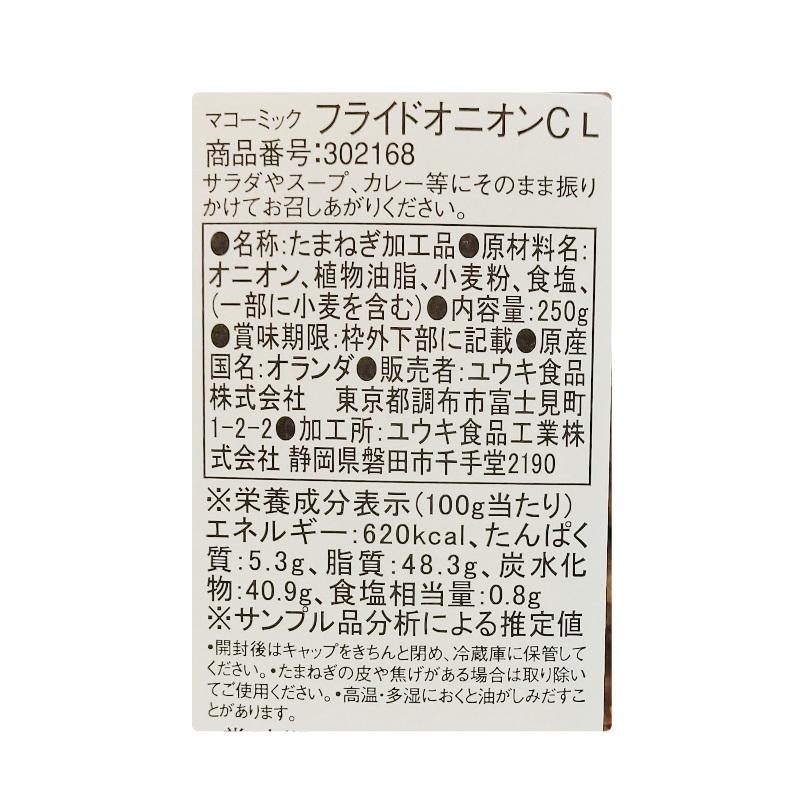 マコーミック フライドオニオンCL
商品番号:302168
サラダやスープ、カレー等にそのまま振り
かけてお召しあがりください。
●名称:たまねぎ加工品●原材料名:
オニオン、植物油脂、小麦粉、食塩、
(一部に小麦を含む)●内容量:250g
●賞味期限:枠外下部に記載●原産
国名:オランダ●販売者:ユウキ食品
株式会社　東京都調布市富士見町
1-2-2●加工所:ユウキ食品工業株
式会社 静岡県磐田市千手堂2190
※栄養成分表示(100g当たり)
エネルギー:620kcal、たんぱく
質:5.3g、脂質:48.3g、炭水化
物:40.9g、食塩相当量:0.8g
※サンプル品分析による推定値
•開封後はキャップをきちんと閉め、冷蔵庫に保管して
ください。•たまねぎの皮や焦げがある場合は取り除い
てご使用ください。•高温・多湿におくと油がしみだすこ
とがあります。